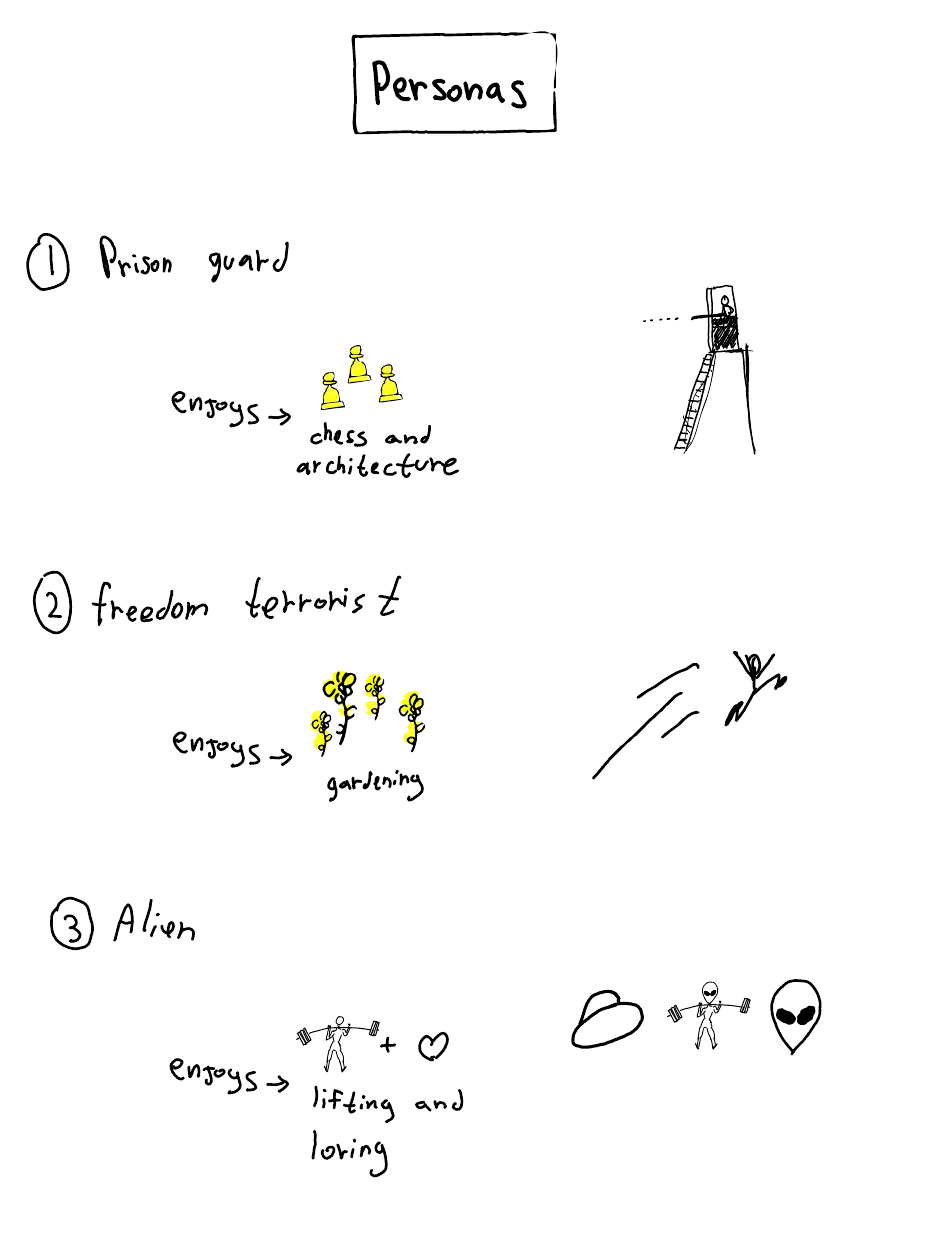 Personas
① Prison guard
enjoys →
chess and
architecture
② freedom terrorist
enjoys →
gardening
③ Alien
enjoys →
+ ♡
lifting and
loving